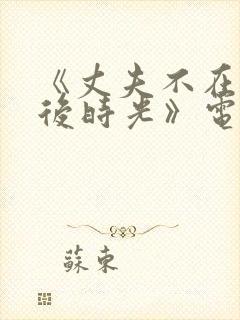 《丈夫不在
後時光》電
蘇東